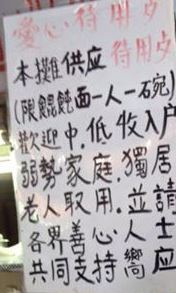 愛心待用夕
待用夕
本攤供应
(酸餛飩面一人一碗)
歡迎中.低收入户
弱勢家庭.獨居
老人取用.並請
各界善心人士
共同支持響应